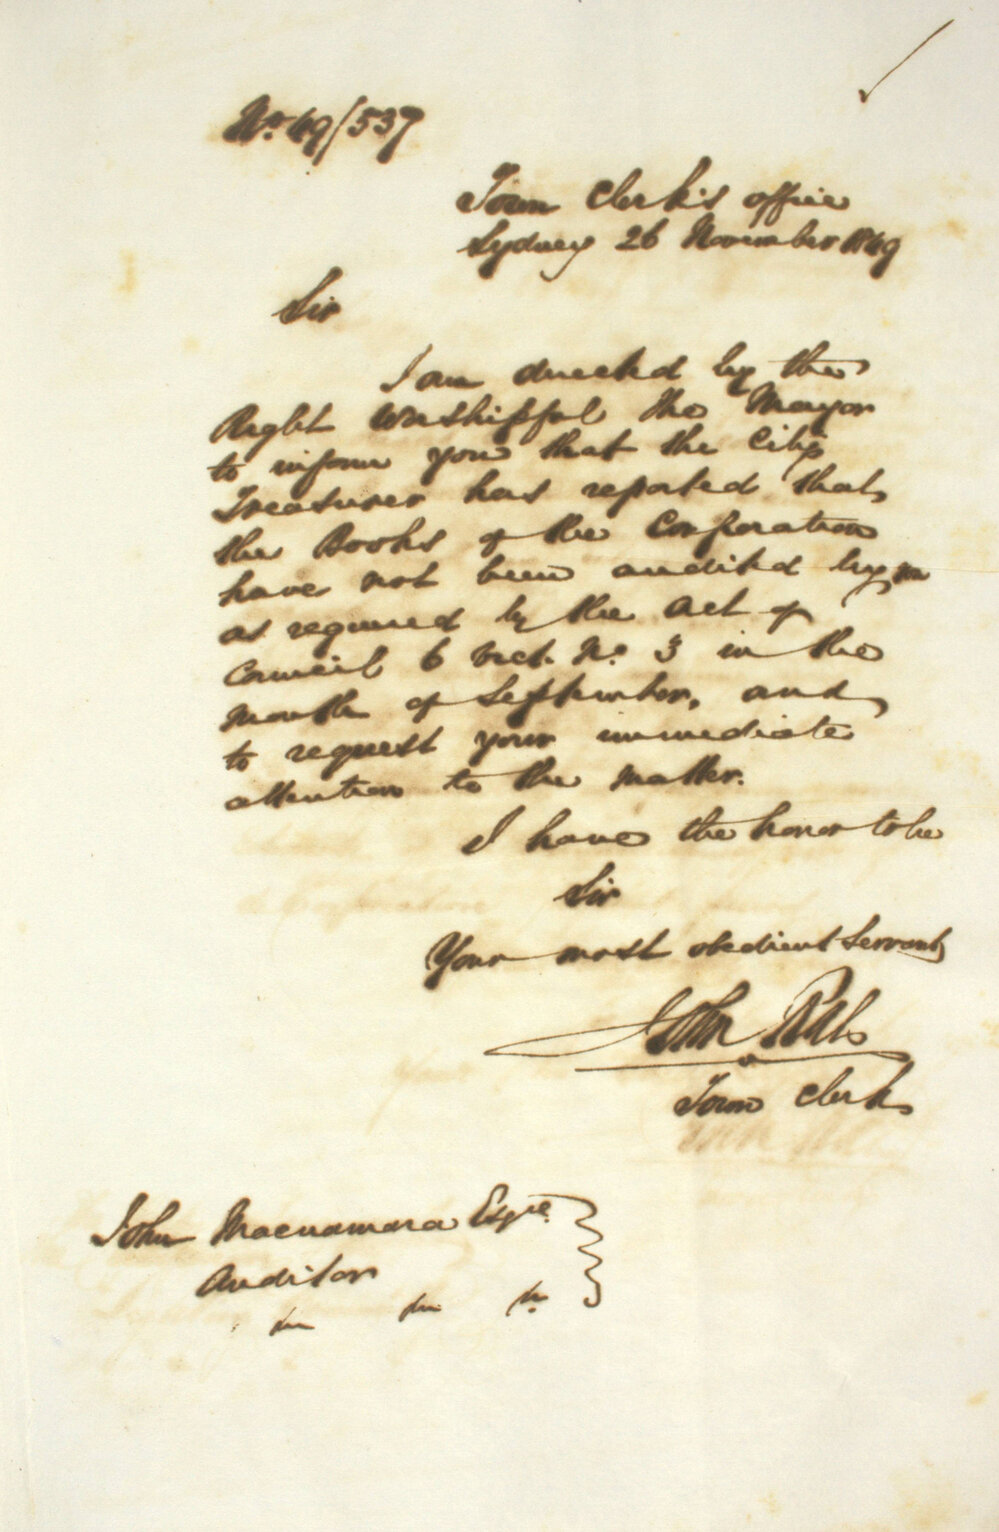 No. 49/537
Town Clerk's office
Sydney 26 November 1849
Sir
I am directed by the
Right Worshipful the Mayor
to inform you that the City
Treasurer has reported that
the Books of the Corporation
have not been audited by you
as required by the Act of
Council 6 Vict. No. 3 in the
month of September, and
to request your immediate
attention to the matter.
I have the honor to be
Sir
Your most obedient Servant
John Rae
Town Clerk
John Macnamara Esqre.
Auditor